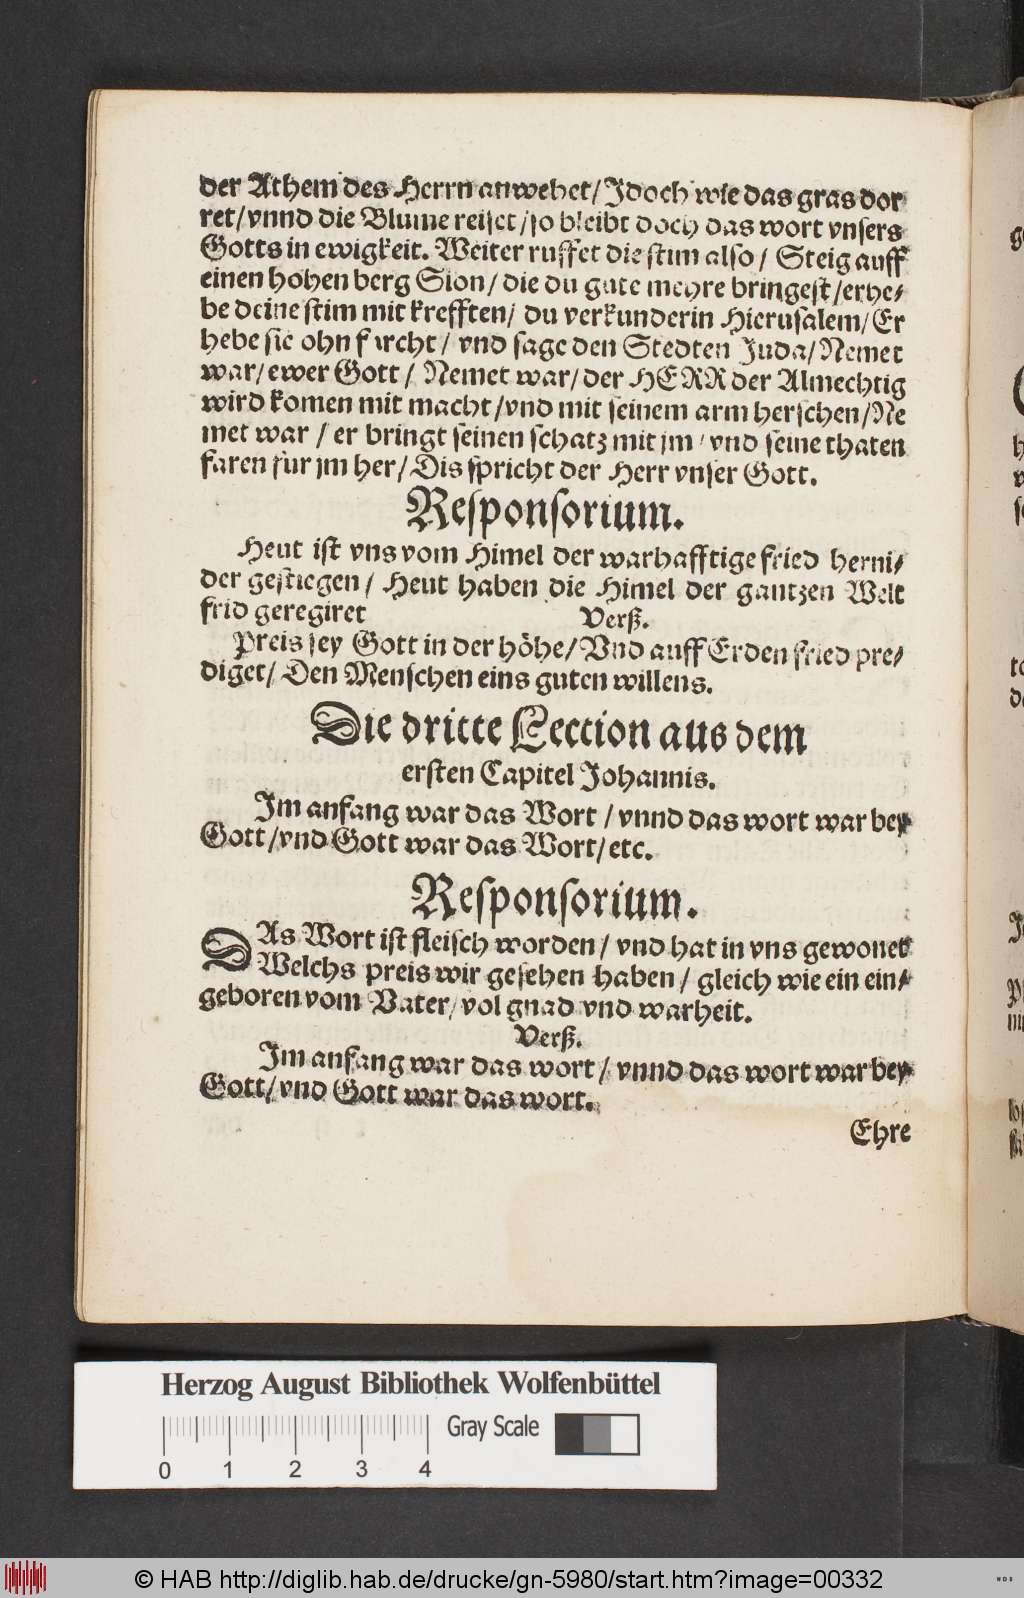 der Athem des Herrn anwehet/ Jdoch wie das gras dor
ret/ vnnd die Blume reiset/ so bleibt doch das wort vnsers
Gotts in ewigkeit. Weiter ruffet die stim also/ Steig auff
einen hohen berg Sion/ die du gute mehre bringest/ erhe-
be deine stim mit krefften/ du verkunderin Hierusalem/ Er
hebe sie ohn furcht/ vnd sage den Stedten Juda/ Nemet
war/ ewer Gott/ Nemet war/ der HERR der Almechtig
wird komen mit macht/ vnd mit seinem arm herschen/ Ne
met war/ er bringt seinen schatz mit jm/ vnd seine thaten
faren fur jm her/ Dis spricht der Herr vnser Gott.
Responsorium.
Heut ist vns vom Himel der warhafftige fried herni-
der gestiegen/ Heut haben die Himel der gantzen Welt
frid geregiret
Verß.
Preis sey Gott in der höhe/ Vnd auff Erden fried pre-
diget/ Den Menschen eins guten willens.
Die dritte Lection aus dem
ersten Capitel Johannis.
Im anfang war das Wort/ vnnd das wort war bey
Gott/ vnd Gott war das Wort/ etc.
Responsorium.
DAs Wort ist fleisch worden/ vnd hat in vns gewonet
Welchs preis wir gesehen haben/ gleich wie ein ein-
geboren vom Vater/ vol gnad vnd warheit.
Verß.
Im anfang war das wort/ vnnd das wort war bey
Gott/ vnd Gott war das wort.
Ehre
Herzog August Bibliothek Wolfenbüttel
Gray Scale
0 1 2 3 4
© HAB http://diglib.hab.de/drucke/gn-5980/start.htm?image=00332